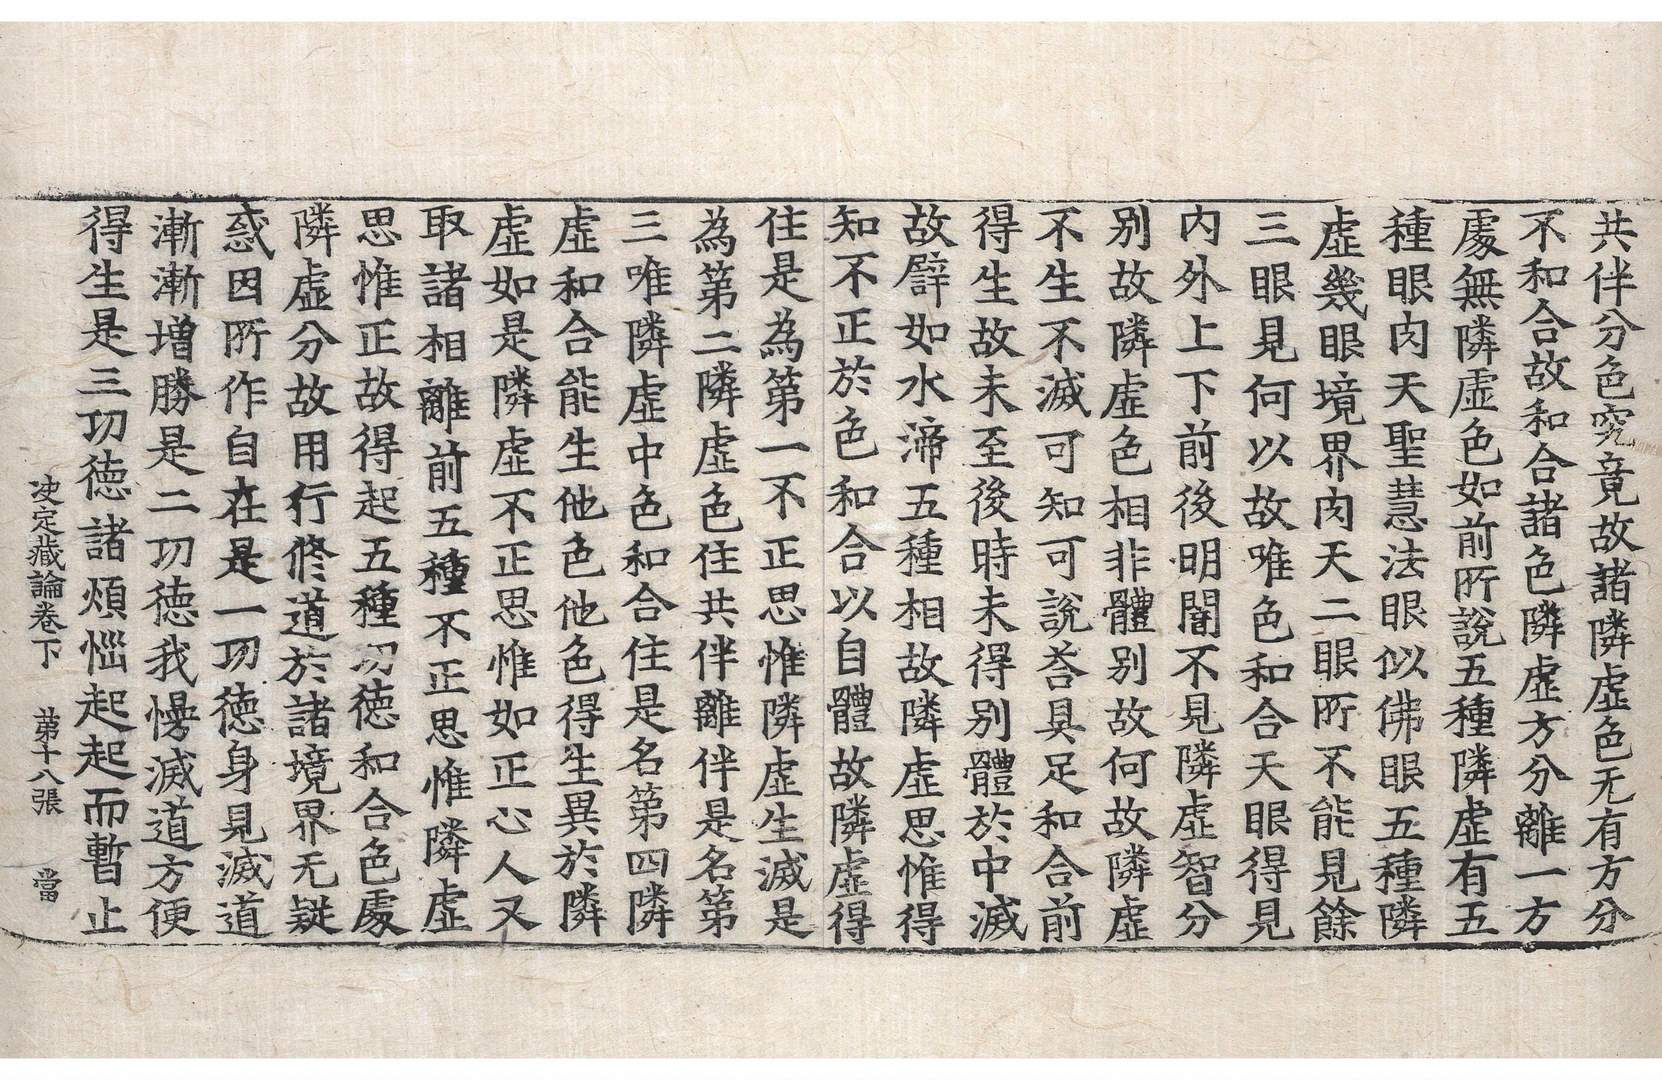 共伴分色究竟故諸隣虛色无有方分
不和合故和合諸色隣虛方分離一方
處無隣虛色如前所說五種隣虛有五
種眼肉天聖慧法眼似佛眼五種隣
虛幾眼境界肉天二眼所不能見餘
三眼見何以故唯色和合天眼得見
内外上下前後明闇不見隣虛智分
别故隣虛色相非體别故何故隣虛
不生不滅可知可說荅具足和合前
得生故未至後時未得别體於中滅
故譬如水渧五種相故隣虛思惟得
知不正於色和合以自體故隣虛得
住是為第一不正思惟隣虛生滅是
為第二隣虛色住共伴離伴是名第
三唯隣虛中色和合住是名第四隣
虛和合能生他色他色得生異於隣
虛如是隣虛不正思惟如正心人又
取諸相離前五種不正思惟隣虛
思惟正故得起五種功德和合色處
隣虛分故用行修道於諸境界无疑
惑因所作自在是一功德身見滅道
漸漸增勝是二功德我慢滅道方便
得生是三功德諸煩惱起起而暫止
决定藏論卷下 第十八張 當